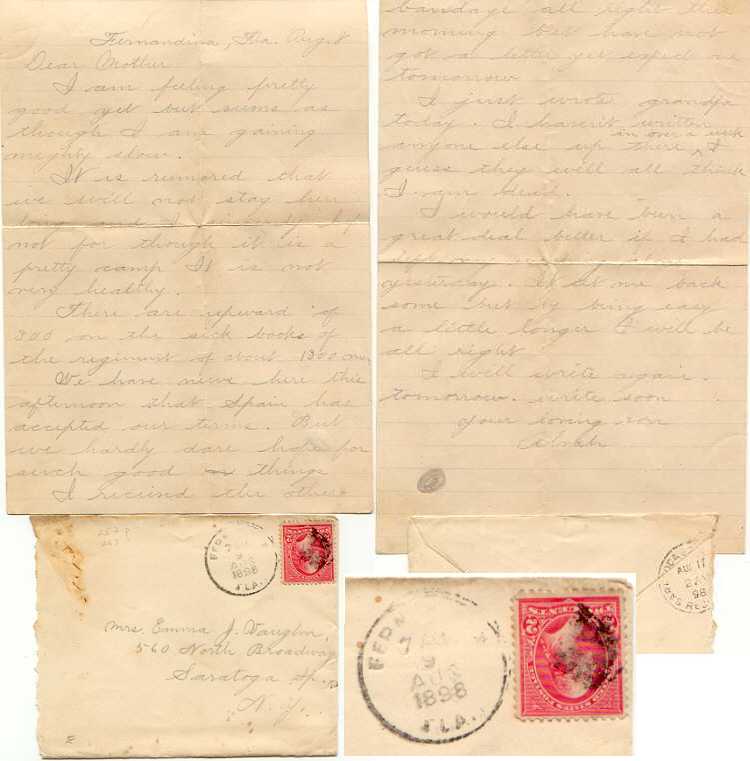 Fernandina, Fla. Aug. 8
Dear Mother
I am feeling pretty
good yet but seems as
though I am gaining
mighty slow.
It is rumored that
we will not stay here
long and I sincerely hope
not for though it is a
pretty camp It is not
very healthy.
There are upward of
300 on the sick books of
the regiment of about 1300 men
We have news here this
afternoon that Spain has
accepted our terms. But
we hardly dare hope for
such good things
I recieved the other
bandage all right this
morning but have not
got a letter yet expect one
tomorrow
I just wrote grandpa
today. I haven't written
in over a week
anyone else up there I
guess they will all think
I am dead.
I would have been a
great deal better if I had
yesterday. It set me back
some but by being easy
a little longer I will be
all right
I will write again
tomorrow. write soon
your loving son
FERN
7 AM
9
AUG
1898
FLA.
Mrs. Emma J. Vaughn,
560 North Broadway
Saratoga Sp.
N. Y.
AUG 11
98
REC'D
FERN
7 AM
9
AUG
1898
FLA.